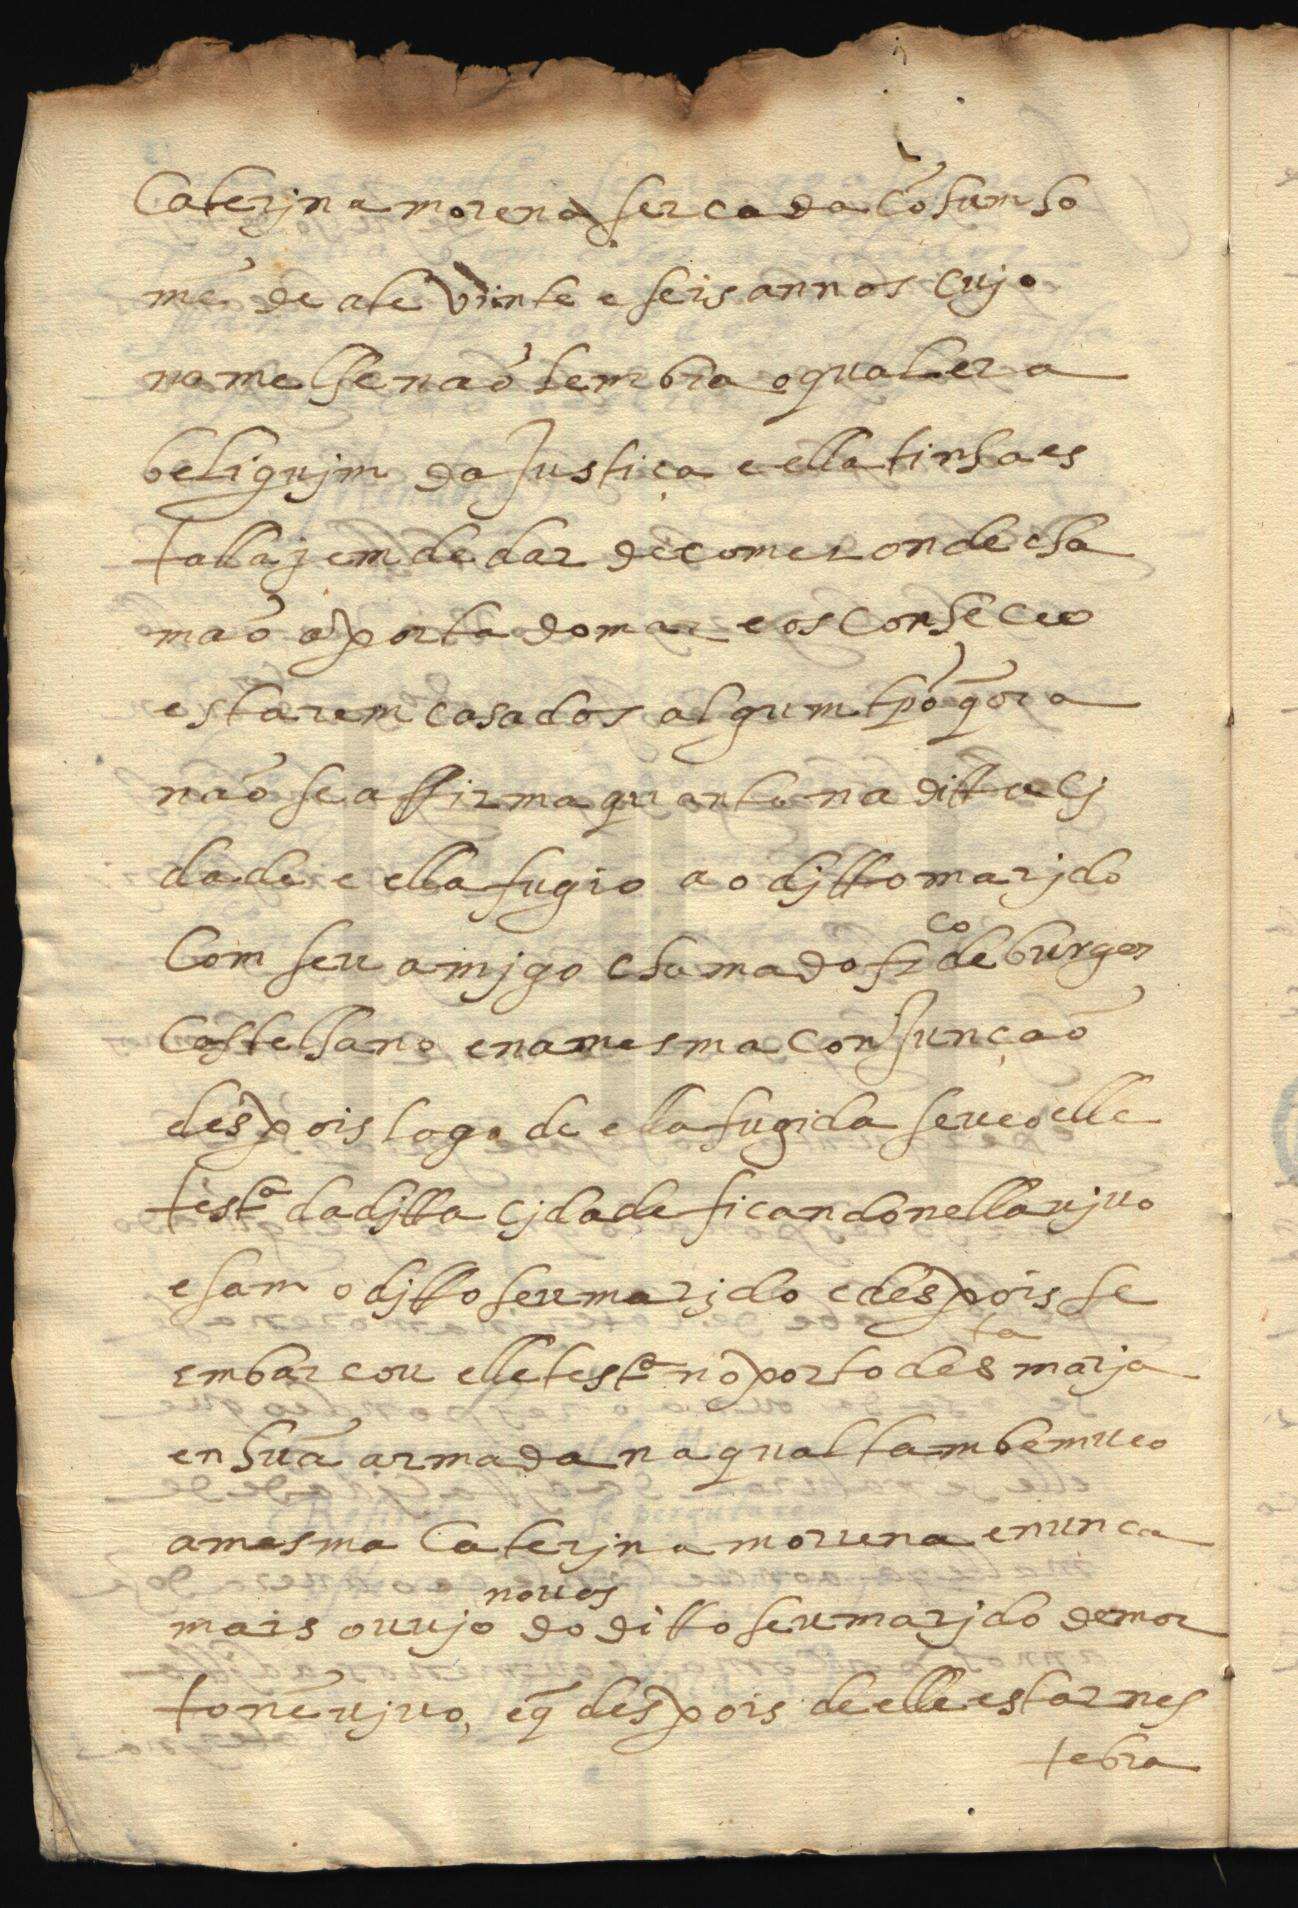 Caterjna morena ser cada cõ hum ho
mẽ de ate viinte e seis annos cujo
nome lhe naõ lembra o qual era
beliguim da Justiça e ella tinha es
tallajem de dar de comer onde cha
maõ a porta do mar e os conheceo
estarem casados algum tpõ q̃ ora
naõ se affirma quanto na ditta Cj
dade e ella fugio ao djtto marjdo
Com seu amjgo chamado frco de burgos
Castelhano e na mesma conjunçaõ
despois logo de ella fugida se ueo elle
testª da djtta cjdade ficando nella ujuo
e sam o djtto seu marjdo e despois se
embarcou elle testª no porto de sta marja
en huã armada na qual tambem ueo
a mesma Caterjna morena e nunca
mais ouujo nouos do ditto seu marjdo de mor
to nẽ ujuo, e q̃ despois de elle estar nes
te bra